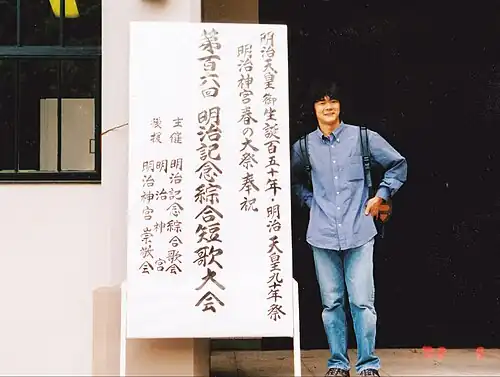 明治天皇御生誕百五十年・明治天皇九十年祭
明治神宮春の大祭奉祝
第百八回 明治記念綜合短歌大会
主催 明治記念綜合歌会
明治神宮
後援 明治神宮崇敬会